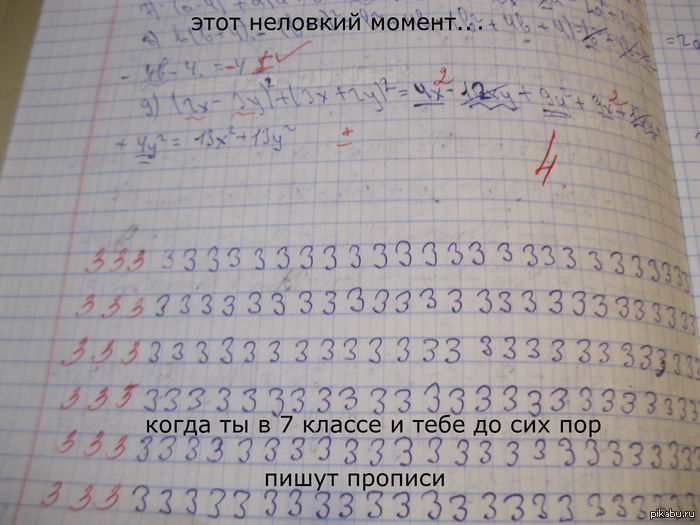 этот неловкий момент...
- 4б - 4. = -4
д) (2x - 3y)² + (3x + 2y)² = 4x² - 12xy + 9y² + 9x² +
+ 4y² = 13x² + 13y²
4
3 3 3 3 3 3 3 3 3 3 3 3 3 3 3 3 3 3 3 3 3 3 3 3 3
3 3 3 3 3 3 3 3 3 3 3 3 3 3 3 3 3 3 3 3 3 3 3 3 3
3 3 3 3 3 3 3 3 3 3 3 3 3 3 3 3 3 3 3 3 3 3 3 3 3
3 3 3 3 3 3 3 3 3 3 3 3 3 3 3 3 3 3 3 3 3 3 3 3 3
когда ты в 7 классе и тебе до сих пор
3 3 3 3 3 3 3 3 3 3 3 3 3 3 3 3 3 3 3 3 3 3 3 3 3
пишут прописи
3 3 3 3 3 3 3 3 3 3 3 3 3 3 3 3 3 3 3 3 3 3 3 3
pikabu.ru